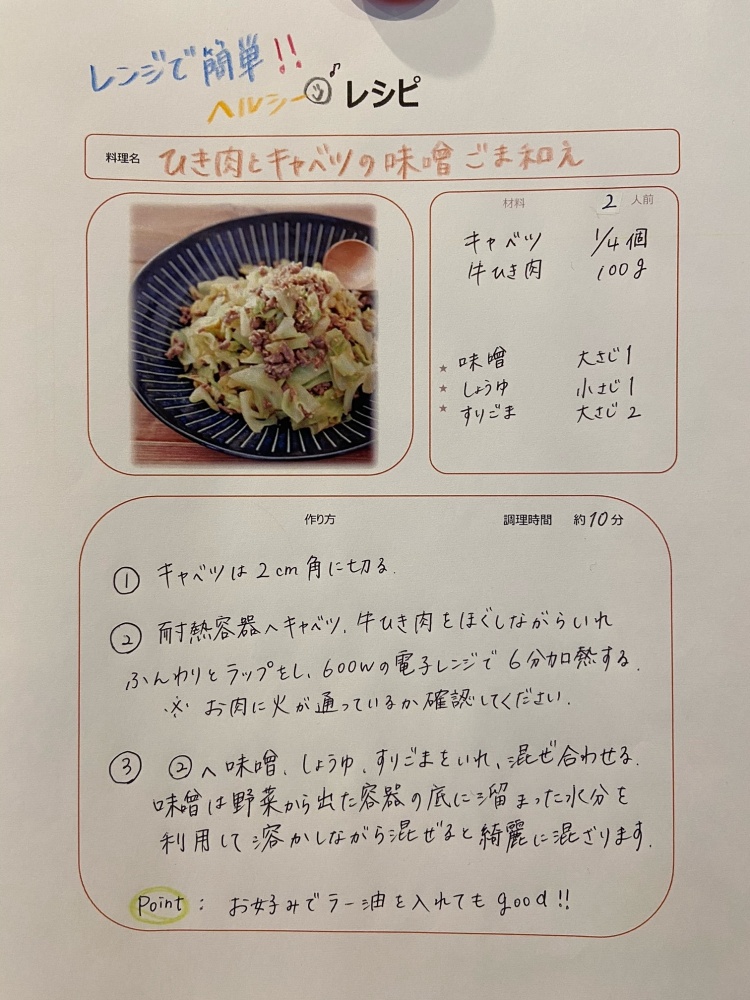 レンジで簡単!!
ヘルシー♪レシピ
料理名 ひき肉とキャベツの味噌ごま和え
材料 2 人前
キャベツ 1/4個
牛ひき肉 100g
★ 味噌 大さじ1
★ しょうゆ 小さじ1
★ すりごま 大さじ2
作り方 調理時間 約10分
① キャベツは2cm角に切る.
② 耐熱容器へキャベツ、牛ひき肉をほぐしながらいれ
ふんわりとラップをし、600wの電子レンジで6分加熱する.
※ お肉に火が通っているか確認してください.
③ ②へ味噌、しょうゆ、すりごまをいれ、混ぜ合わせる.
味噌は野菜から出た容器の底に溜まった水分を
利用して溶かしながら混ぜると綺麗に混ざります.
Point : お好みでラー油を入れてもgood!!